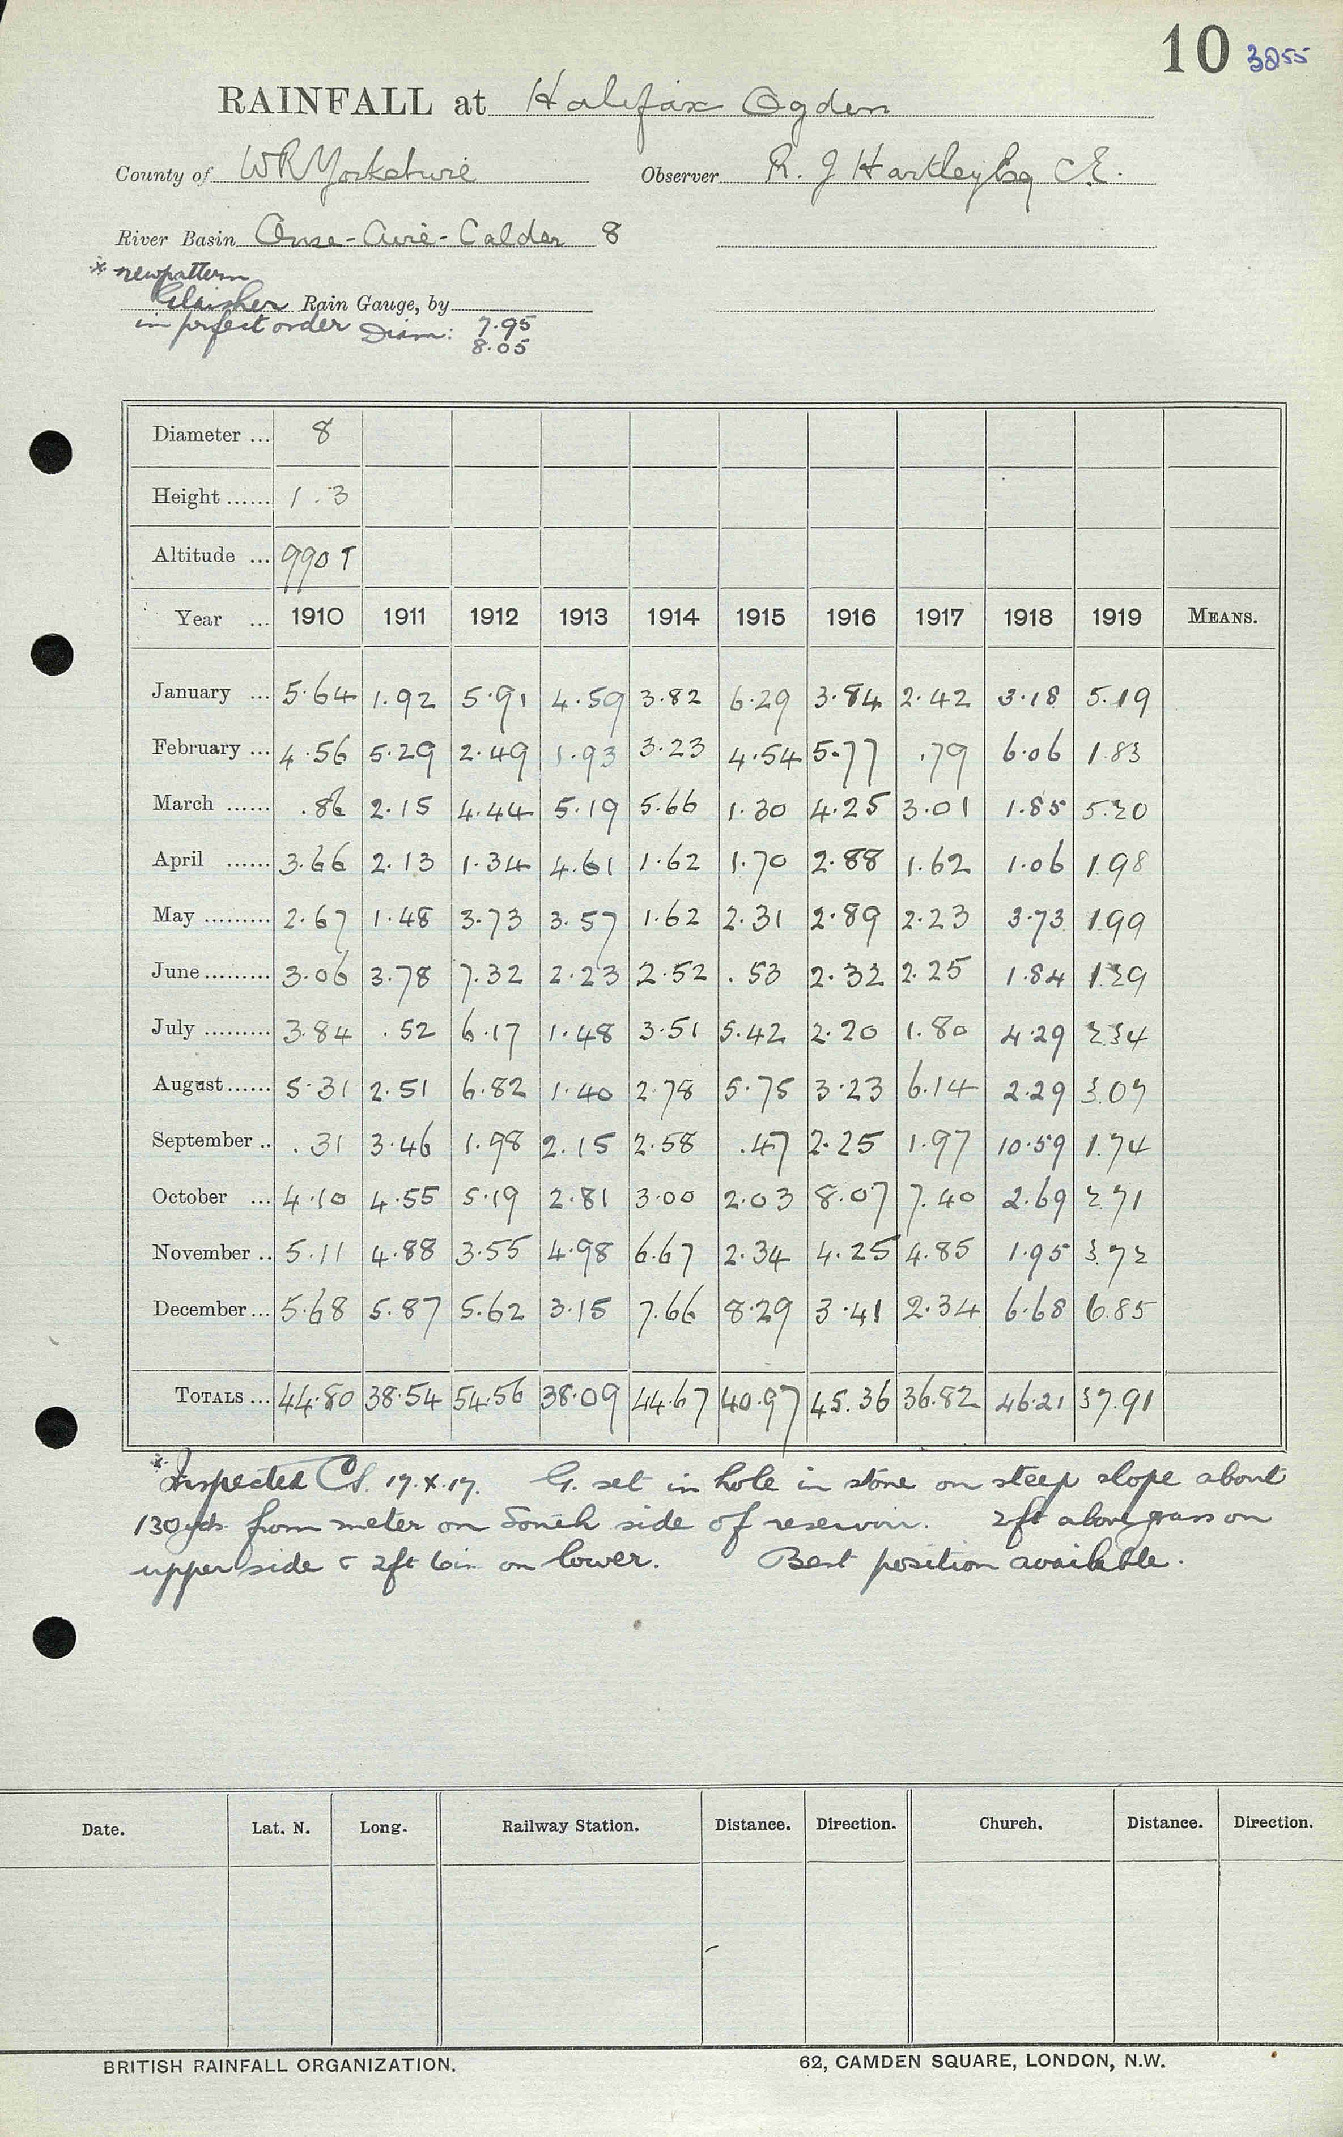 10 3255
RAINFALL at Halifax Ogden
County of WR Yorkshire Observer R. J Hartley Esq C.E.
River Basin Ouse-Aire-Calder 8
* new pattern
Glaisher Rain Gauge, by
in perfect order Diam: 7.95
8.05
Diameter ... 8
Height ...... 1.3
Altitude ... 990 T
Year ... 1910 1911 1912 1913 1914 1915 1916 1917 1918 1919 MEANS.
January ... 5.64 1.92 5.91 4.59 3.82 6.29 3.84 2.42 3.18 5.19
February ... 4.56 5.29 2.49 1.93 3.23 4.54 5.77 .79 6.06 1.83
March ...... .86 2.15 4.44 5.19 5.66 1.30 4.25 3.01 1.85 5.20
April ...... 3.66 2.13 1.34 4.61 1.62 1.70 2.88 1.62 1.06 1.98
May ......... 2.67 1.48 3.73 3.57 1.62 2.31 2.89 2.23 3.73 1.99
June ......... 3.06 3.78 7.32 2.23 2.52 .53 2.32 2.25 1.84 1.29
July ......... 3.84 .52 6.17 1.48 3.51 5.42 2.20 1.80 4.29 2.34
August ...... 5.31 2.51 6.82 1.40 2.78 5.75 3.23 6.14 2.29 3.07
September .. .31 3.46 1.98 2.15 2.58 .47 2.25 1.97 10.59 1.74
October ... 4.10 4.55 5.19 2.81 3.00 2.03 8.07 7.40 2.69 2.71
November .. 5.11 4.88 3.55 4.98 6.67 2.34 4.25 4.85 1.95 3.72
December ... 5.68 5.87 5.62 3.15 7.66 8.29 3.41 2.34 6.68 6.85
TOTALS ... 44.80 38.54 54.56 38.09 44.67 40.97 45.36 36.82 46.21 37.91
* Inspected C.S. 17.X.17. G. set in hole in stone on steep slope about
130 yds from meter on South side of reservoir. 2ft above grass on
upper side & 2ft 6in on lower. Best position available.
Date. Lat. N. Long. Railway Station. Distance. Direction. Church. Distance. Direction.
BRITISH RAINFALL ORGANIZATION. 62, CAMDEN SQUARE, LONDON, N.W.